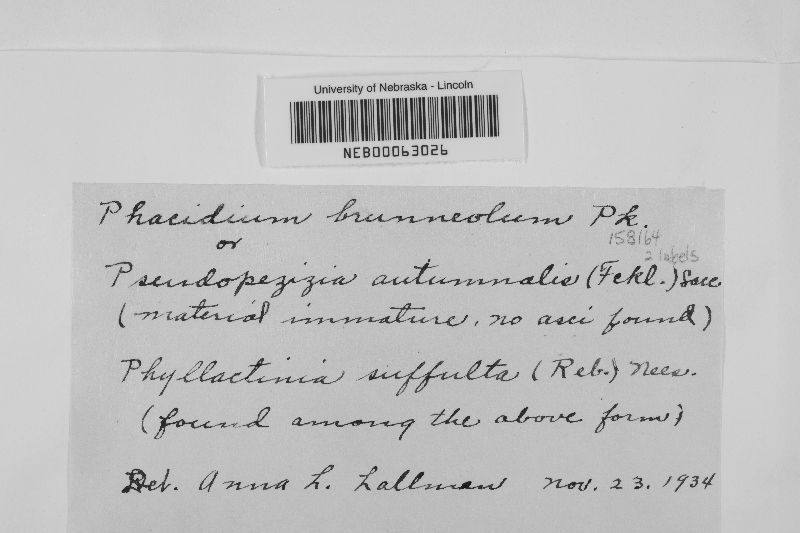 University of Nebraska - Lincoln
NEB00063026
Phacidium brunneolum Pk.
or
158164
2 labels
Pseudopezizia autumnalis (Fckl.) Sacc.
(material immature, no asci found)
Phyllactinia suffulta (Reb.) Nees.
(found among the above form)
Det. Anna L. Lallman Nov. 23. 1934